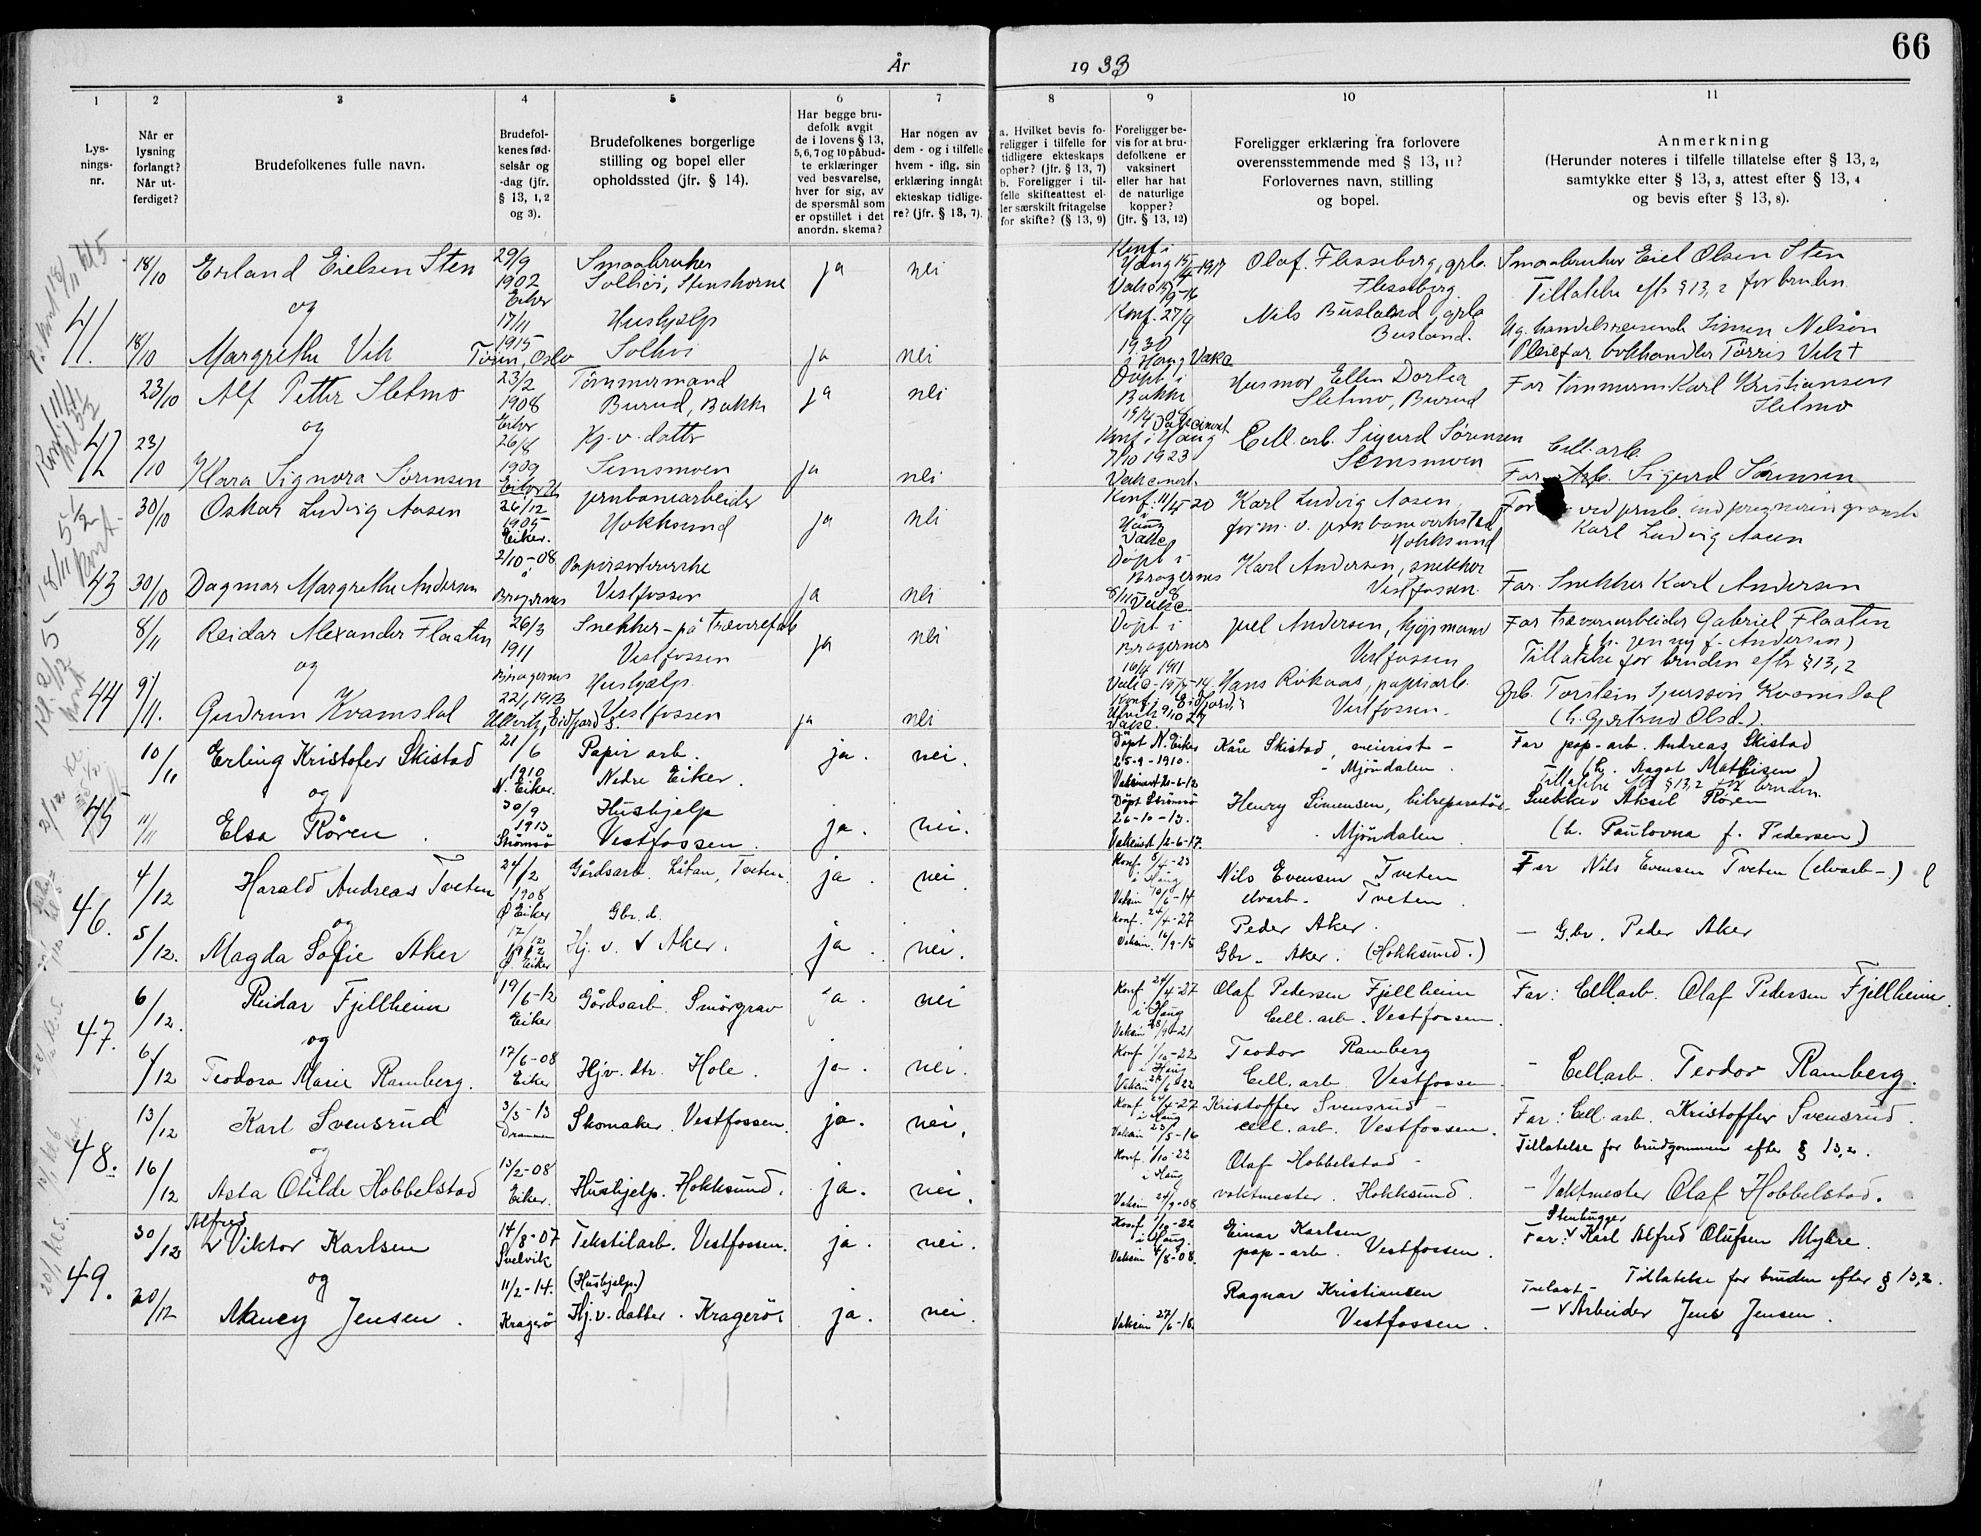 66
År 1933
1 2 3 4 5 6 7 8 9 10 11
Lysningsnr.
Når er lysning forlangt? Når utferdiget?
Brudefolkenes fulle navn.
Brudefolkenes fødselsår og -dag (jfr. § 13, 1, 2 og 3).
Brudefolkenes borgerlige stilling og bopel eller opholdssted (jfr. § 14).
Har begge brudefolk avgit de i lovens § 13, 5, 6, 7 og 10 påbudte erklæringer ved besvarelse, hver for sig, av de spørsmål som er opstillet i det anordn. skema?
Har nogen av dem - og i tilfelle hvem - iflg. sin erklæring inngåt ekteskap tidligere? (jfr. § 13, 7).
a. Hvilket bevis foreligger i tilfelle for tidligere ekteskaps ophør? (jfr. § 13, 7) b. Foreligger i tilfelle skifteattest eller særskilt fritagelse for skifte? (§ 13, 9)
Foreligger bevis for at brudefolkene er vaksinert eller har hat de naturlige kopper? (jfr. § 13, 12)
Foreligger erklæring fra forlovere overensstemmende med § 13, 11? Forlovernes navn, stilling og bopel.
Anmerkning (Herunder noteres i tilfelle tillatelse efter § 13, 2, samtykke efter § 13, 3, attest efter § 13, 4 og bevis efter § 13, 8).
41.
18/10 Erland Eielsen Sten 29/9 1902 Eiker Smaabruker Solhøi, Stenshorne ja nei Konf. i Haug 15/4-1917 Olaf Flesseberg, grbr. Flesseberg Smaabruker Eiel Olsen Sten
Tillatelse eftr § 13, 2 for bruden
og
18/10 Margrethe Vik 17/11 1915 Oslo Hushjælp Solhøi ja nei Konf. 27/9 1930 i Haug Nils Busland, grbr. Busland. Ug. handelsreisende Simen Nelson
Pleiefar bokhandler Tørris Vik †
42
23/10 Alf Petter Sletmo 23/2 1908 Eiker Tømmermand Burud, Bakke ja nei Døpt i Bakke 19/4 08 Husmor Ellen Dorthea Sletmo, Burud Far tømmerm. Karl Kristiansen Sletmo
og
23/10 Klara Signora Sørensen 26/8 1909 Eiker Hj. v. datter Semsmoen ja nei Konf. i Haug 7/10 1923 Vakcinert. Cell. arb. Sigurd Sørensen Semsmoen Cell. arb. Far: Arb. Sigurd Sørensen
43
30/10 Oskar Ludvig Aasen 26/12 1905 Eiker. Jernbanearbeider Hokksund ja nei Konf. 11/4 20 i Haug Vakc. Karl Ludvig Aasen, form. v. jernbaneverksted Hokksund Far Karl Ludvig Aasen
30/10 Dagmar Margrethe Andersen 2/10-08 i Bragernes Papirsorterske Vestfossen ja nei Døpt i Bragernes 8/11 08 Vakc. Karl Andersen, snekker Vestfossen. Far: Snekker Karl Andersen
44
8/11 Reidar Alexander Flaatin 26/3 1911 Bragernes Snekker-på trævarefab Vestfossen ja nei Døpt i Bragernes 16/4 1911 Juel Andersen, kjøpmand Vestfossen Far trævarearbeider Gabriel Flaatin
(h. Jenny f. Andersen)
Tillatelse for bruden eftr § 13, 2
og
9/11. Gudrun Kvamsdal 22/1 1913 Ullensv., Eidfjord s. Hushjælp. Vestfossen ja nei Konf. i Eidfjord, 9/10 27 Vakc. Hans Rokaas, papirarb. Vestfossen. Grb. Torstein Sjursson Kvamsdal
(h. Gjertrud Olsd.)
45
10/11 Erling Kristofer Skistad 21/6 1910 N. Eiker. Papir arb. Nedre Eiker. ja. nei. Døpt N. Eiker 25-9-1910. Vaksinert 21-6-12 Kåre Skistad, meierist - - Mjöndalen. Far pap-arb. Andreas Skistad
(h. Aagot Mathisen)
Tillatelse eft. § 13,2 for bruden.
og
11/11 Elsa Rören. 30/9 1913 Strömsö Hushjelp Vestfossen. ja. nei. Döpt Strömsö 26-10-13. Vaksinert 12-6-17. Henry Simensen, bilreparatör - Mjöndalen Snekker Aksel Rören
(h. Paulovna f. Pedersen)
46.
4/12 Harald Andreas Tveten 24/12 1908 Ø Eiker Gårdsarb. Låtan, Tveten. ja. nei. Konf. 8/4-23 i Haug Vaksin 10/6-14 Nils Evensen Tveten elvarb- Tveten. Far Nils Evensen Tveten (elvarb-)
og
5/12. Magda Sofie Aker 17/12 1912 Ø. Eiker Gbr. d. Hj. v. Aker. ja. nei. Konf. 24/4-27 Vaksin. 16/9-18 Peder Aker. Gbr. Aker. (Hokksund.) - Gbr. Peder Aker
47.
6/12. Reidar Fjellheim 19/6-12 Eiker Gårdsarb. Smörgrav ja. nei Konf 24/4-27 i Haug Vaksin 28/9-21 Olaf Pedersen Fjellheim Cell. arb. Vestfossen. Far: Cell.arb. Olaf Pedersen Fjellheim.
og
6/12 Teodora Marie Ramberg. 17/6-08 Eiker Hjv. dtr. Hole. ja. nei. Konf 1/10-22 i Haug Teodor Ramberg Cell. arb. Vestfossen. - Cellarb. Teodor Ramberg.
48.
13/12 Karl Svensrud 3/3-13 Drammen Skomaker. Vestfossen. ja. nei. Konf. 24/4-27 i Haug Vaksin 23/5-16 Kristoffer Svensrud - cell. arb. Vestfossen. Far: Cell. arb. Kristoffer Svensrud.
Tillatelse for brudgommen efter § 13,2.
og
16/12 Asta Otilde Hobbelstad 13/2-08 Eiker. Hushjelp. Hokksund. ja. nei. Konf. 1/10-22 i Haug Vaksin 24/9-08 Olaf Hobbelstad - vaktmester. Hokksund. - Vaktmester Olaf Hobbelstad.
49.
30/12 Alfred Viktor Karlsen 14/8-07 Svelvik Tekstilarb. Vestfossen. ja. nei. Konf 1/10-22 i Haug. Vaksin 4/8-08. Einar Karlsen pap-arb. Vestfossen. Stenhugger Far: Karl Alfred Olufsen Myhre.
Tillatelse for bruden efter § 13,2.
og
30/12 Nancy Jensen. 11/2-14. Kragerö (Hushjelp.) Hj. v. datter. Kragerö. ja. nei. Vaksin 27/6-18. Ragnar Kristiansen Vestfossen. Trelast- - Arbeider Jens Jensen.